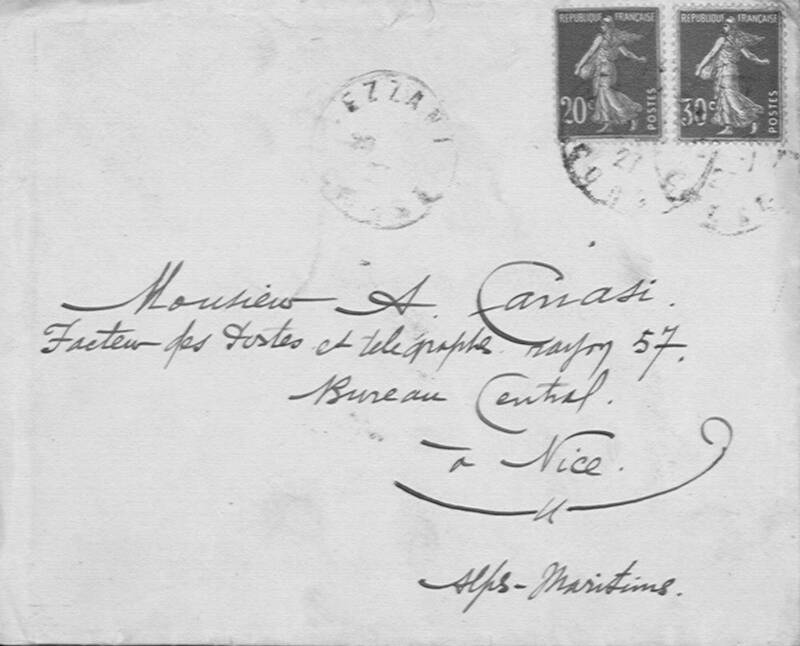 REPUBLIQUE FRANÇAISE
20c POSTES
REPUBLIQUE FRANÇAISE
30c POSTES
EZZANI
Monsieur A. Canasi.
Facteur des Postes et télégraphes rayon 57.
Bureau Central.
à Nice.
Alpes-Maritimes.